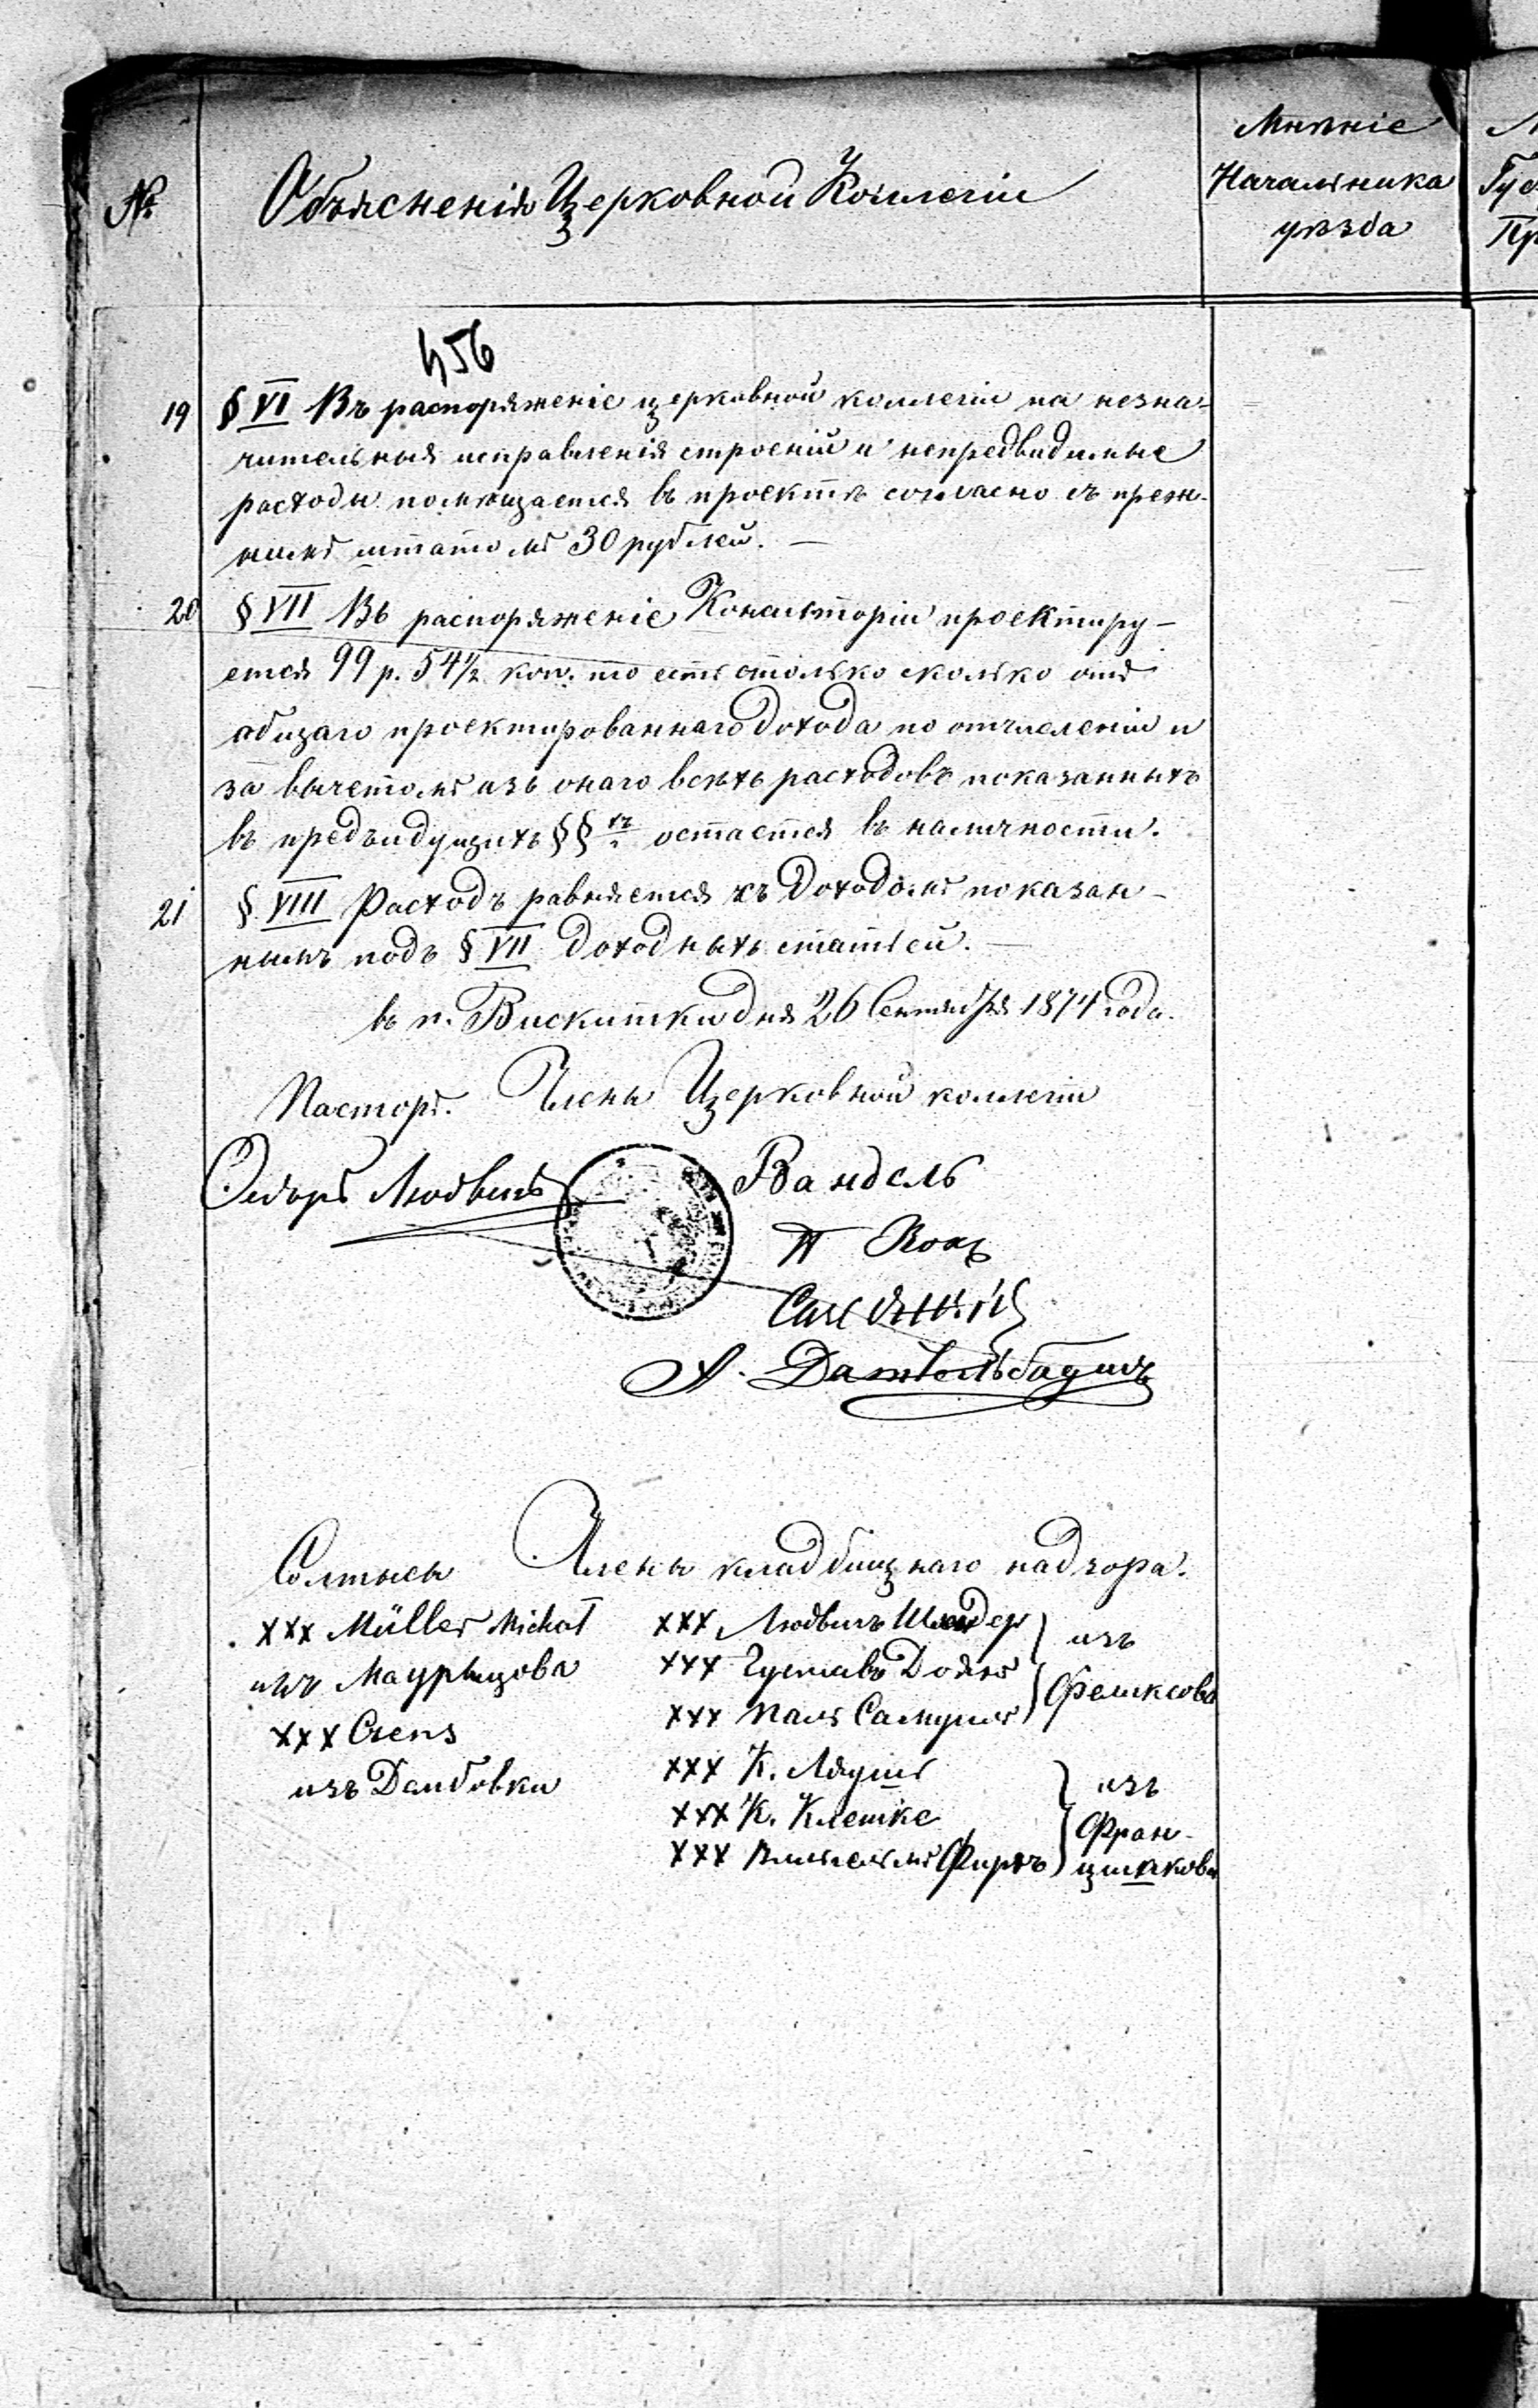 №
Объясненія Церковной Коллегіи
Мнѣніе
Начальника
уѣзда
456
19 § VI Въ распоряженіе церковной коллегіи на незна-
чительныя исправленія строеній и непредвидимые
расходы помѣщается въ проектѣ согласно съ преж-
нимъ штатомъ 30 рублей. —
20 § VII Въ распоряженіе Консисторіи проектиру-
ется 99 р. 54½ коп. то есть столько сколько отъ
общаго проектированнаго дохода по отчисленіи и
за вычетомъ изъ онаго всѣхъ расходовъ показанныхъ
въ предъидущихъ §§хъ остается въ наличности.
21 § VIII Расходъ равняется съ доходомъ показан-
нымъ подъ § VII доходныхъ статьей. —
въ п. Вискитки дня 26 Сентября 1874 года.
Пасторъ. Члены Церковной коллегіи
Людвигъ
Вандель
Кох
А.
Солтысы Члены кладбищнаго надзора.
xxx Müller Michał
изъ Маурыцова
xxx
изъ Дембовки
xxx Людвигъ
xxx Густавъ
xxx Самуилъ
изъ
Феликсова
xxx К.
xxx К. Клешке
xxx Вильгельмъ
изъ
Фран-
цишкова